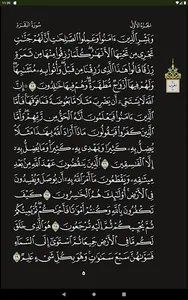 الجُزْءُ الأَوَّلُ سُورَةُ البَقَرَةِ
وَبَشِّرِ ٱلَّذِينَ ءَامَنُوا۟ وَعَمِلُوا۟ ٱلصَّٰلِحَٰتِ أَنَّ لَهُمْ جَنَّٰتٍ
تَجْرِى مِن تَحْتِهَا ٱلْأَنْهَٰرُ ۖ كُلَّمَا رُزِقُوا۟ مِنْهَا مِن ثَمَرَةٍ
رِّزْقًا ۙ قَالُوا۟ هَٰذَا ٱلَّذِى رُزِقْنَا مِن قَبْلُ ۖ وَأُتُوا۟ بِهِۦ مُتَشَٰبِهًا ۖ
وَلَهُمْ فِيهَآ أَزْوَٰجٌ مُّطَهَّرَةٌ ۖ وَهُمْ فِيهَا خَٰلِدُونَ ٢٥
۞ إِنَّ ٱللَّهَ لَا يَسْتَحْىِۦٓ أَن يَضْرِبَ مَثَلًا مَّا بَعُوضَةً فَمَا
فَوْقَهَا ۚ فَأَمَّا ٱلَّذِينَ ءَامَنُوا۟ فَيَعْلَمُونَ أَنَّهُ ٱلْحَقُّ مِن رَّبِّهِمْ ۖ
وَأَمَّا ٱلَّذِينَ كَفَرُوا۟ فَيَقُولُونَ مَاذَآ أَرَادَ ٱللَّهُ بِهَٰذَا مَثَلًا ۘ
يُضِلُّ بِهِۦ كَثِيرًا وَيَهْدِى بِهِۦ كَثِيرًا ۚ وَمَا يُضِلُّ بِهِۦٓ
إِلَّا ٱلْفَٰسِقِينَ ٢٦ ٱلَّذِينَ يَنقُضُونَ عَهْدَ ٱللَّهِ مِنۢ بَعْدِ
مِيثَٰقِهِۦ وَيَقْطَعُونَ مَآ أَمَرَ ٱللَّهُ بِهِۦٓ أَن يُوصَلَ وَيُفْسِدُونَ
فِى ٱلْأَرْضِ ۚ أُو۟لَٰٓئِكَ هُمُ ٱلْخَٰسِرُونَ ٢٧ كَيْفَ
تَكْفُرُونَ بِٱللَّهِ وَكُنتُمْ أَمْوَٰتًا فَأَحْيَٰكُمْ ۖ ثُمَّ يُمِيتُكُمْ
ثُمَّ يُحْيِيكُمْ ثُمَّ إِلَيْهِ تُرْجَعُونَ ٢٨ هُوَ ٱلَّذِى خَلَقَ
لَكُم مَّا فِى ٱلْأَرْضِ جَمِيعًا ثُمَّ ٱسْتَوَىٰٓ إِلَى ٱلسَّمَآءِ
فَسَوَّىٰهُنَّ سَبْعَ سَمَٰوَٰتٍ ۚ وَهُوَ بِكُلِّ شَىْءٍ عَلِيمٌ ٢٩
٥